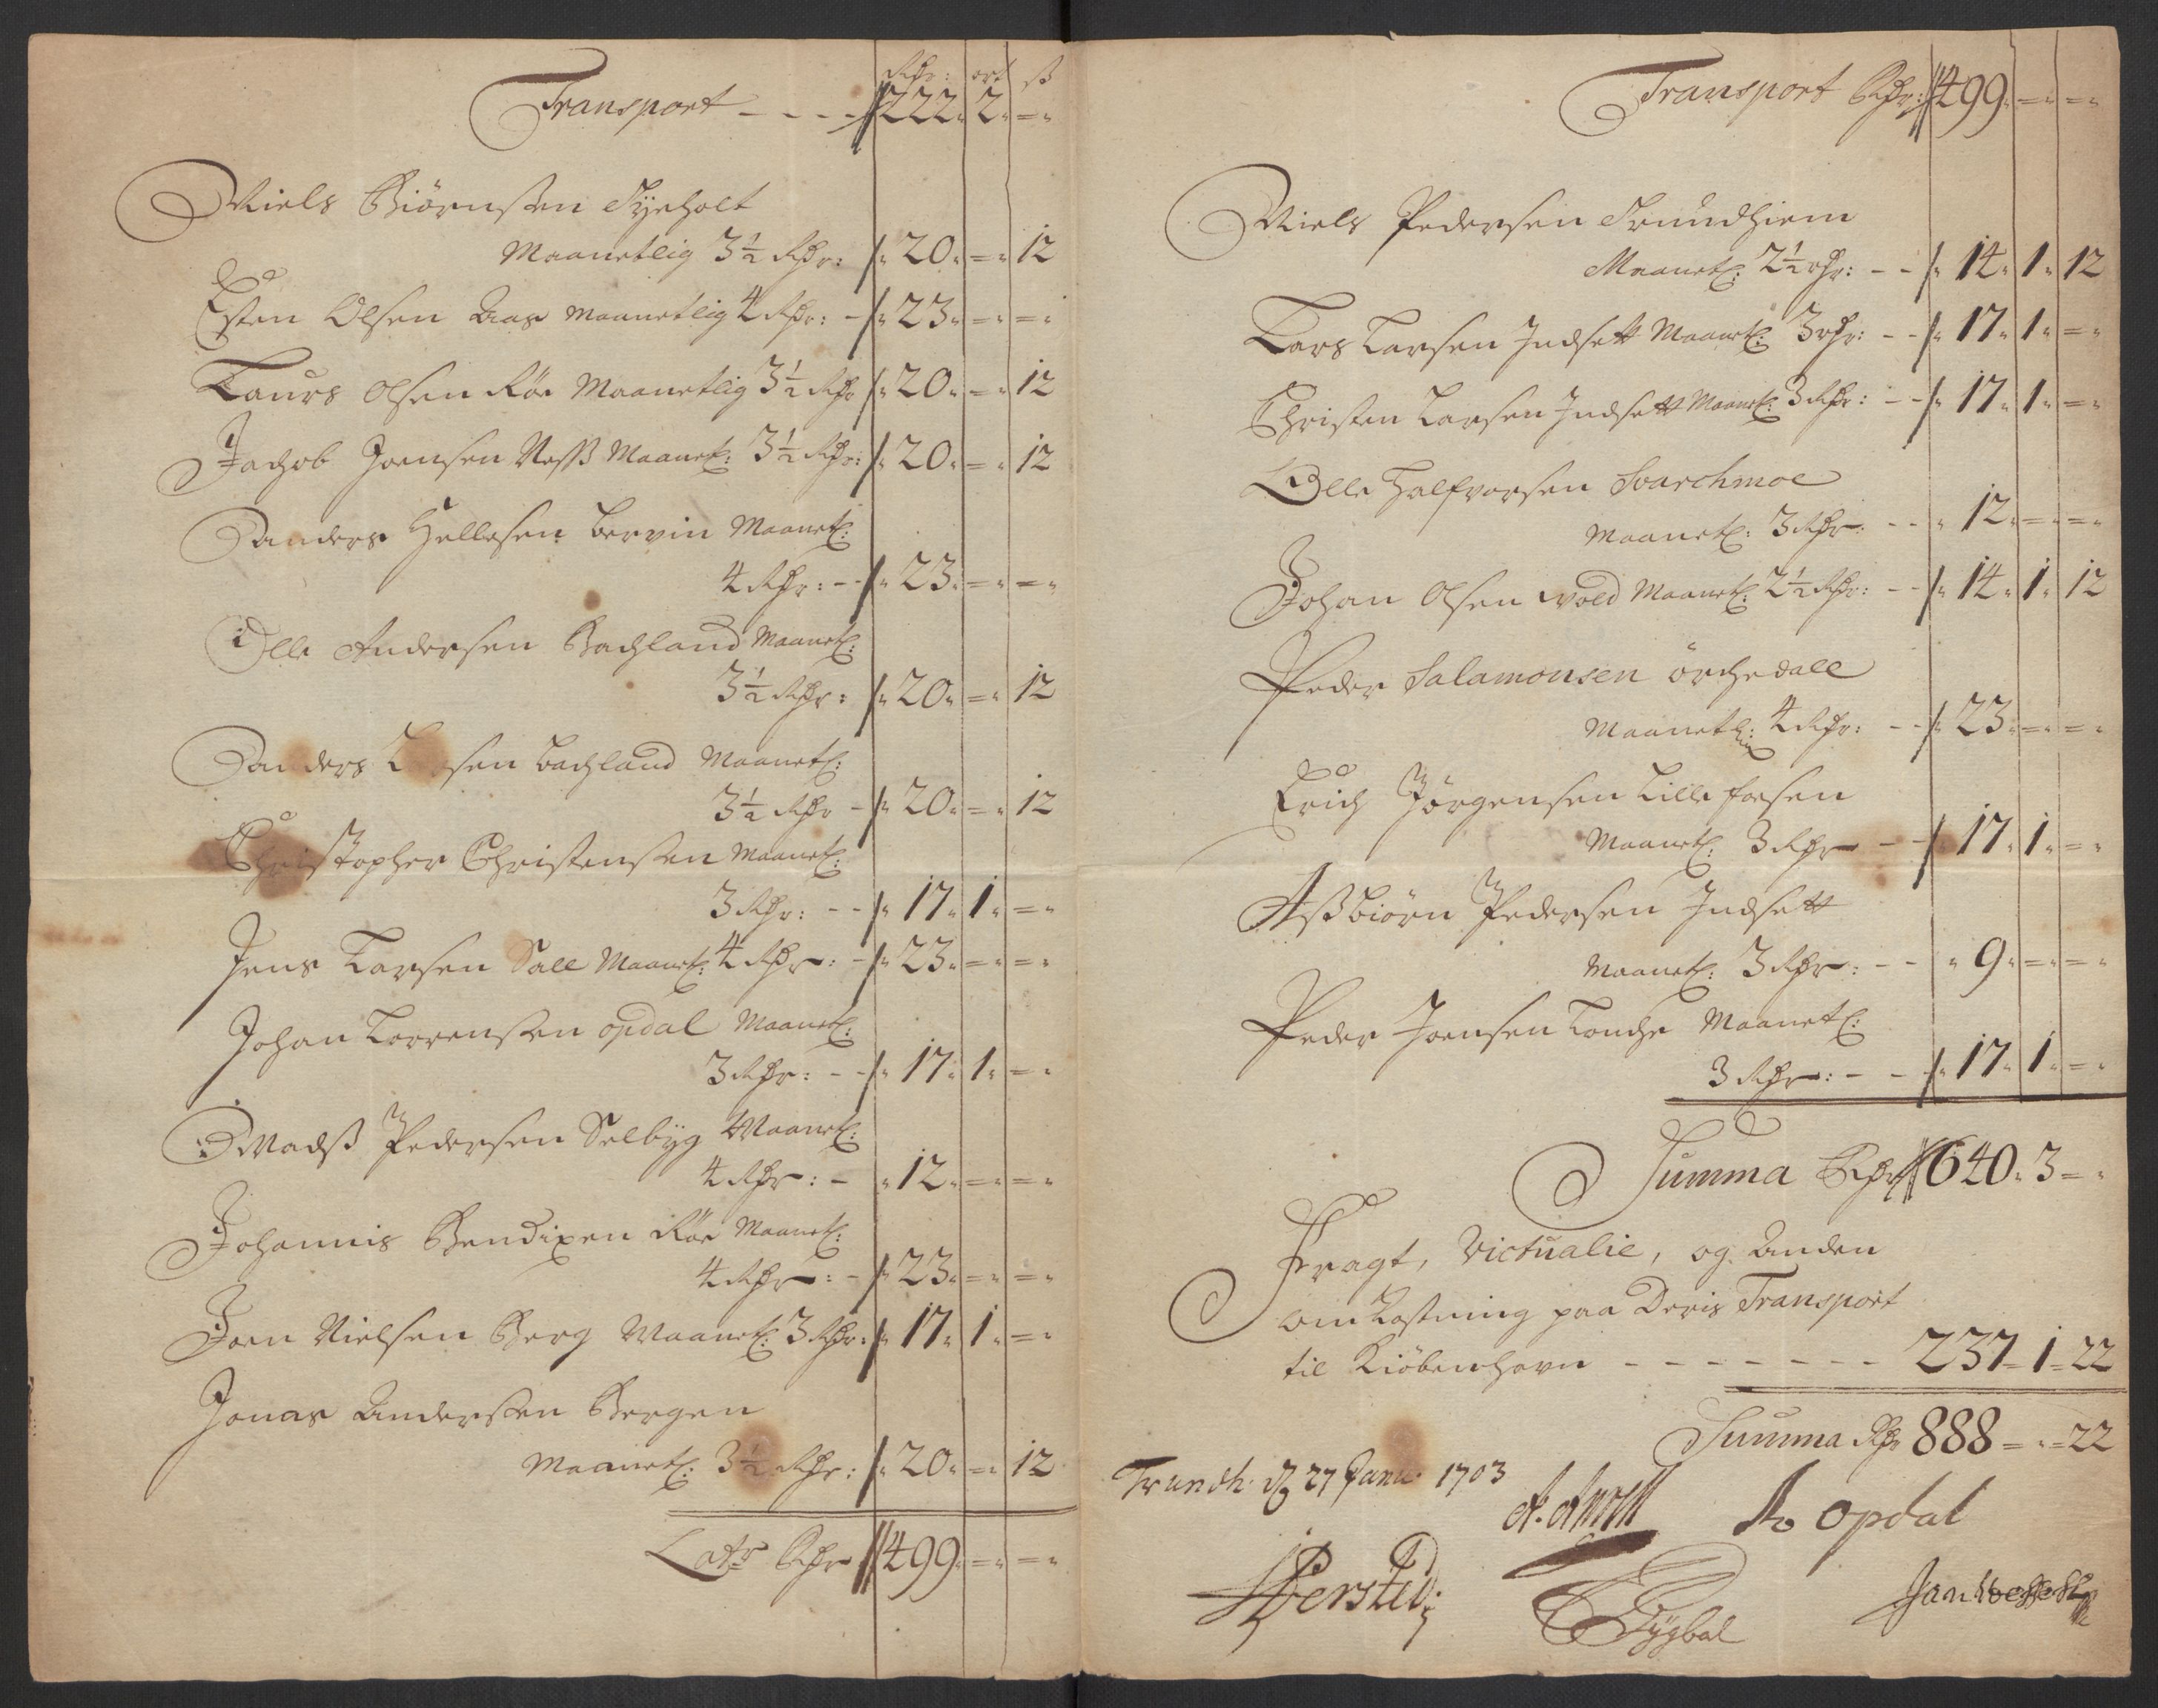 Rdr: ort ß
Transport - - - - 222. 2. =.
Niels Biörnsen Tyeholt
Maanetlig 3½ Rdr: 20. =. 12
Esten Olsen Aas Maanetlig 4 Rdr: - 23. =. =.
Laurs Olsen Röe Maanetlig 3½ Rdr 20. =. 12
Jachob Joensen Næss Maanetl: 3½ Rdr: 20. =. 12
Anders Hellesen Bervin Maanetl:
4 Rdr: - - 23. =. =.
Olle Andersen Bachland Maanetl:
3½ Rdr: 20. =. 12
Anders sen Bachland Maanetl:
3½ Rdr - 20. =. 12
Christopher Christensen Maanetl:
3 Rdr: - - 17. 1. =.
Jens Larsen Sall Maanetl: 4 Rdr: - 23. =. =.
Johan Lorrensen opdal Maanetl:
3 Rdr: - - 17. 1. =.
Madss Pedersen Selbyg Maanetl:
4 Rdr: - 12. =. =.
Johannis Bendixen Röe Maanetl:
4 Rdr: - 23. =. =.
Joen Nielsen Berg Maanetl: 3 Rdr: 17. 1. =.
Jonas Andersen Bergen
Maanetl: 3½ Rdr: 20. =. 12
Latr Rdr 499. =. =.
Transport Rdr: 499. =. =.
Niels Pedersen Trundhiem
Maanetl: 2½ rdr: - - 14. 1. 12
Lars Larsen Indsett Maanetl: 3 rdr: - - 17. 1. =.
Christen Larsen Indsett Maanetl: 3 Rdr: - - 17. 1. =.
Olle Halfvorsen Svarchmoe
Maanetl: 3 Rdr. - - 12. =. =.
Johan Olsen wold Maanetl: 2½ Rdr: - - 14. 1. 12
Peder Salamonsen örchedall
Maanetl: 4 Rdr: - - 23. =. =.
Erich Jörgensen Lille fosen
Maanetl: 3 Rdr - - 17. 1. =.
Assbiörn Pedersen Indsett
Maanetl: 3 Rdr: - - 9. =. =.
Peder Joensen Lonche Maanetl:
3 Rdr: - - 17. 1. =.
Summa Rdr 640. 3 =.
Fragt, Victualie, og Anden
omkostning paa Deris Transport
til Kiöbenhavn - - - - - - - 237 = 1 = 22
Summa Rdr 888 = . = 22
Trundh: d 27 Janu: 1703
opdal